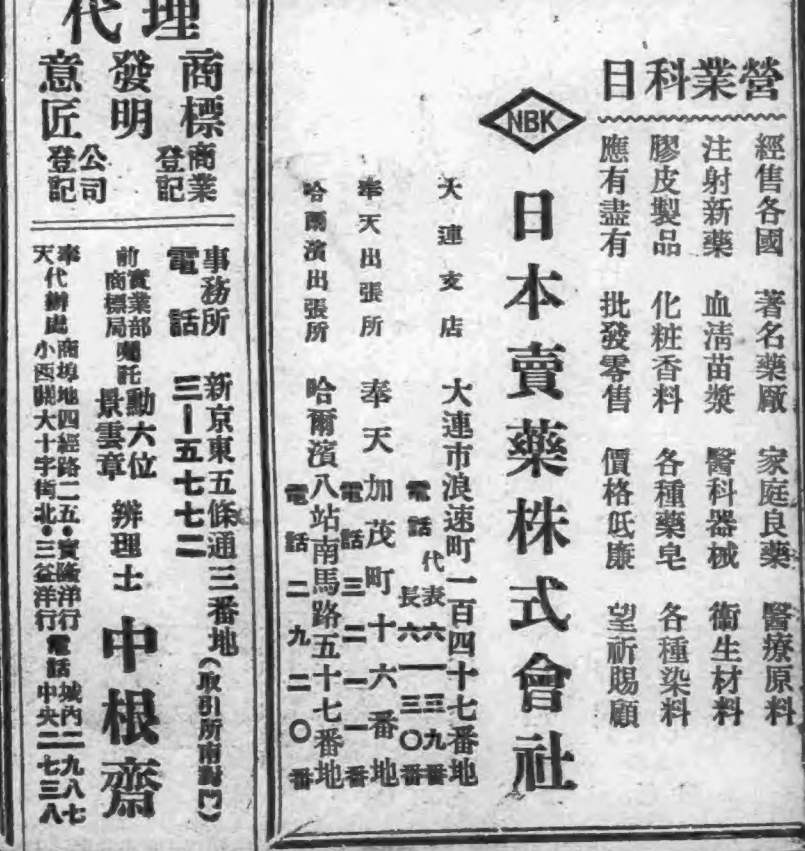 營業科目
經售各國 著名藥廠 家庭良藥 醫療原料
注射新藥 血清苗漿 醫科器械 衛生材料
膠皮製品 化粧香料 各種藥皂 各種染料
應有盡有 批發零售 價格低廉 望祈賜顧
NBK
日本賣藥株式會社
大連支店 大連市浪速町一百四十七番地
電話 代表六一三九番
長六一三〇番
奉天出張所 奉天加茂町十六番地
電話三二一一番
哈爾濱出張所 哈爾濱八站南馬路五十七番地
電話二九二〇番
代理
商標
發明
意匠
商業登記
公司登記
事務所 新京東五條通三番地(取引所南對門)
電話 三-五七七二
前實業部商標局囑託 勳六位景雲章 辨理士 中根齋
奉天代辦處 商埠地四經路二五・寶隆洋行 電話城內二九八七
小西關大十字街北・三益洋行 電話中央二七三八